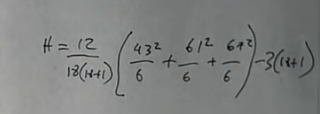 H = \frac{12}{18(18+1)} \left( \frac{43^2}{6} + \frac{61^2}{6} + \frac{67^2}{6} \right) - 3(18+1)